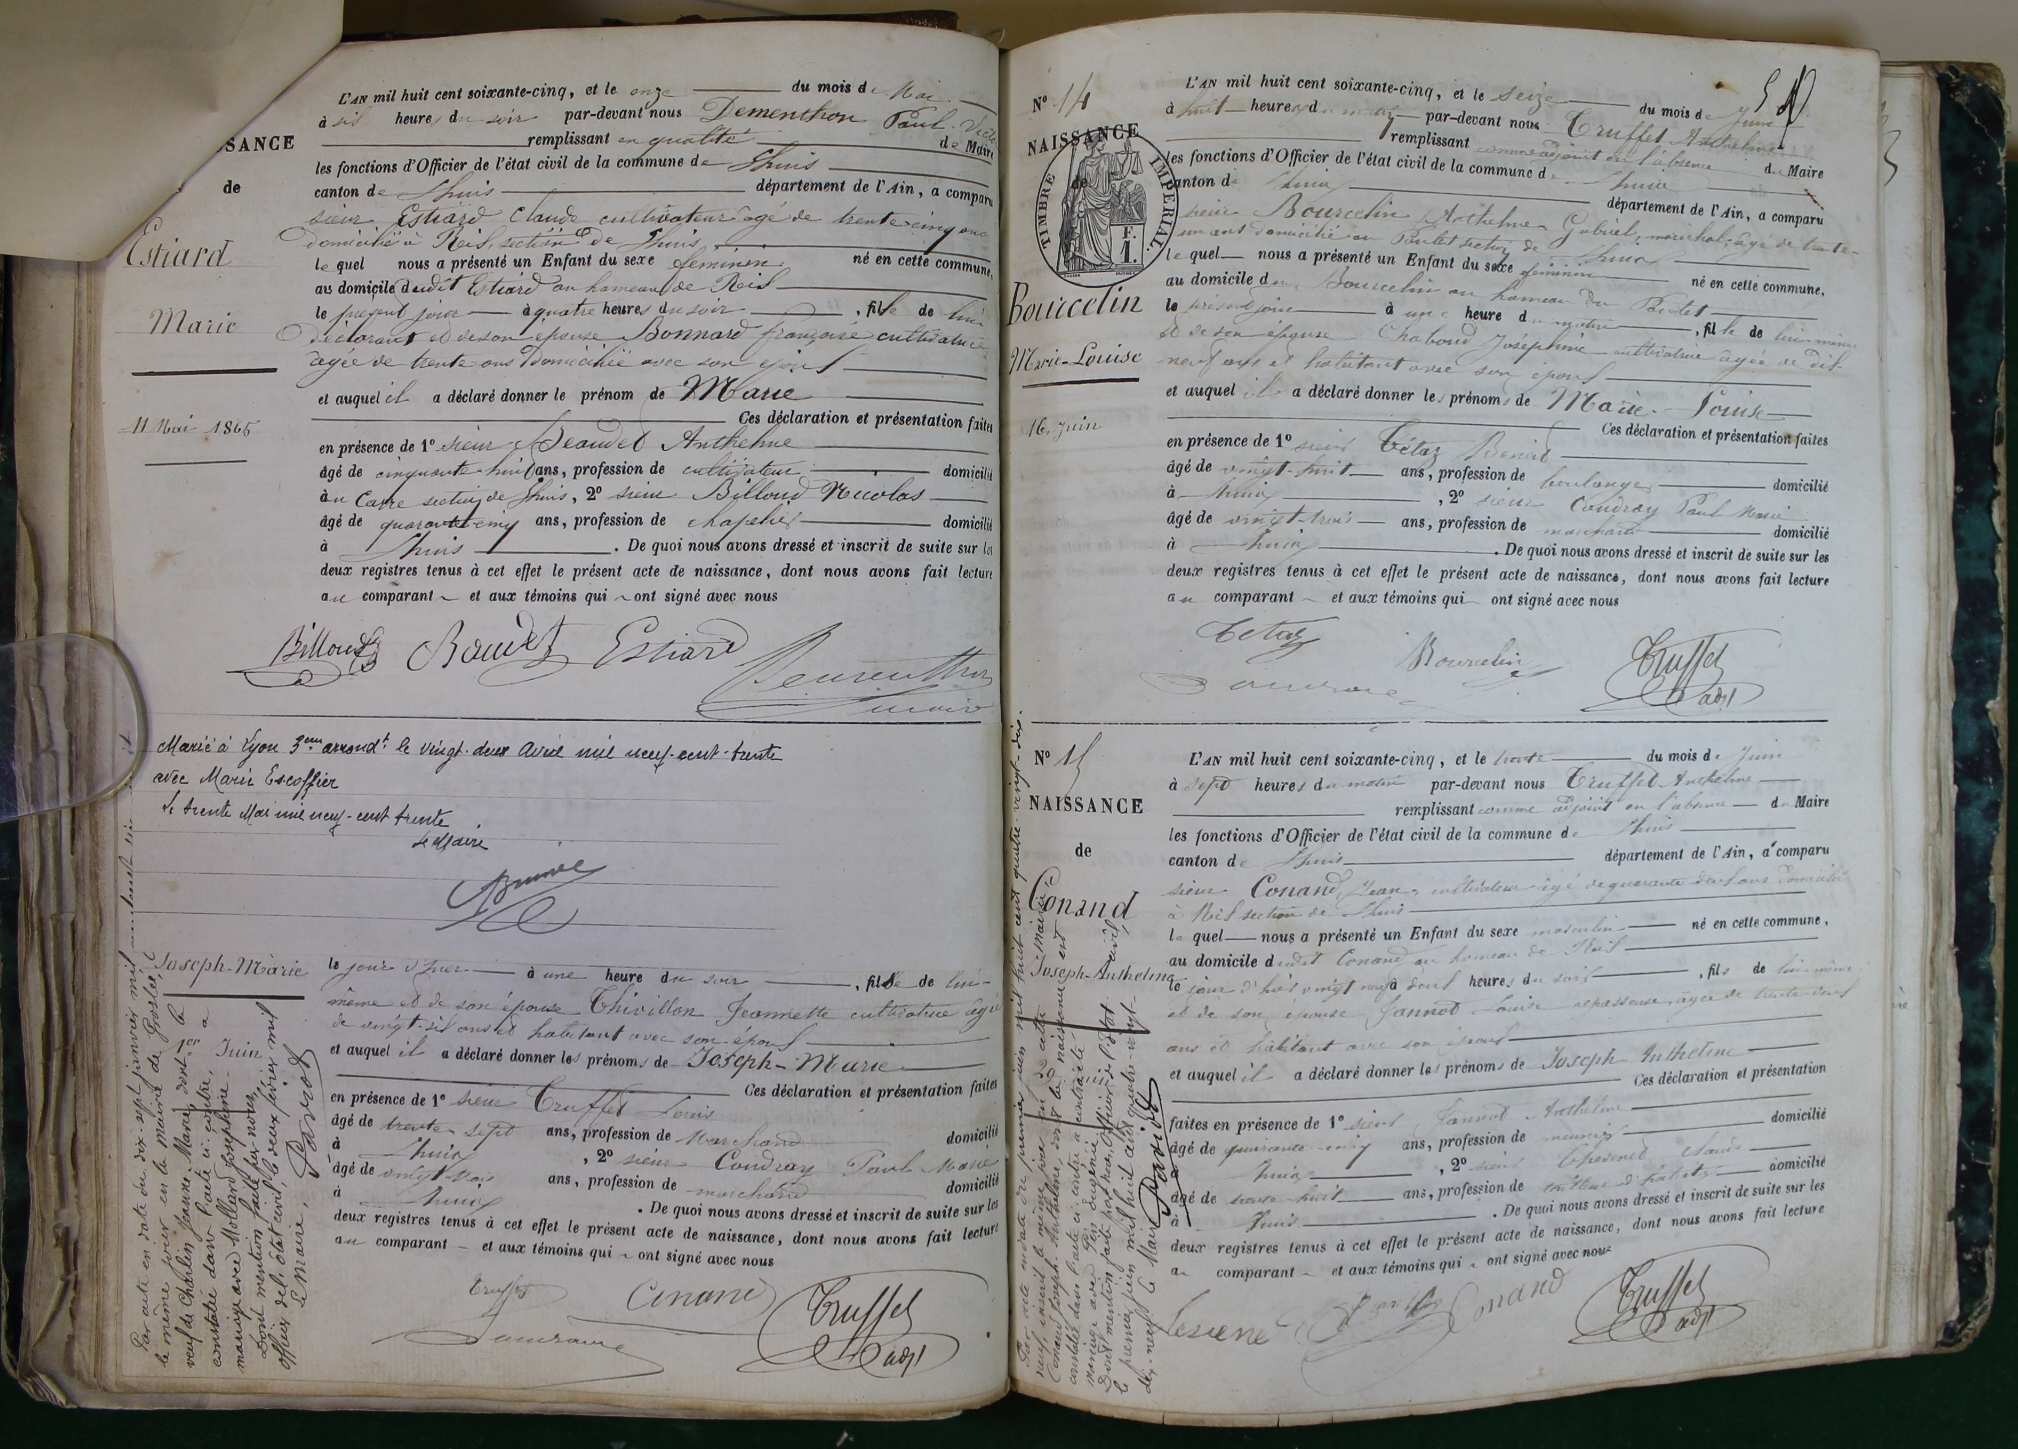 SSANCE
de
Estiard
Marie
11 Mai 1865
L'AN mil huit cent soixante-cinq, et le onze du mois de Mai
à six heures du soir par-devant nous Dementhon Paul
remplissant en qualité de Maire
les fonctions d'Officier de l'état civil de la commune de Lhuis
canton de Lhuis département de l'Ain, a comparu
sieur Estiard Claude cultivateur âgé de trente-cinq ans
domicilié à Reis, section de Lhuis
lequel nous a présenté un Enfant du sexe féminin né en cette commune,
au domicile dudit Estiard au hameau de Reis
le présent jour à quatre heures du soir, fille de lui
déclarant et de son épouse Bonnard françoise cultivatrice
âgée de trente ans domicilié avec son époux
et auquel il a déclaré donner le prénom de Marie
Ces déclaration et présentation faites
en présence de 1º sieur Beaudet Anthelme
âgé de cinquante-huit ans, profession de cultivateur domicilié
au Carre section de Lhuis, 2º sieur Billoud Nicolas
âgé de quarante-cinq ans, profession de chapelier domicilié
à Lhuis. De quoi nous avons dressé et inscrit de suite sur les
deux registres tenus à cet effet le présent acte de naissance, dont nous avons fait lecture
au comparant et aux témoins qui ont signé avec nous
Billoud Baudet Estiard
Dementhon
maire
Marié à Lyon 3eme arrondt le vingt-deux Avril mil neuf-cent-trente
avec Marie Escoffier
Le trente Mai mil neuf-cent trente
Le Maire
Joseph-Marie
1er Juin
le jour d'hier à une heure du soir, fils de lui-
même et de son épouse Thivillon Jeannette cultivatrice âgée
de vingt-six ans et habitant avec son époux
et auquel il a déclaré donner les prénoms de Joseph-Marie
Ces déclaration et présentation faites
en présence de 1º sieur Truffet Louis
âgé de trente-sept ans, profession de Marchand domicilié
à Lhuis, 2º sieur Coudray Paul Marie
âgé de vingt-trois ans, profession de marchand domicilié
à Lhuis. De quoi nous avons dressé et inscrit de suite sur les
deux registres tenus à cet effet le présent acte de naissance, dont nous avons fait lecture
au comparant et aux témoins qui ont signé avec nous
Truffet Conand Truffet
adjt
Par acte en date du dix-sept janvier mil
le même jour en la mairie de Groslée
veuf de Charlin Jeanne-Marie dont la
constatée dans l'acte ci-contre, a
mariage avec Mollard Josephine
Dont mention faite par nous,
officier de l'état civil, le deux février mil
Le Maire,
Nº 14
NAISSANCE
de
TIMBRE IMPERIAL
F.
1.
Bourcelin
Marie-Louise
16 Juin
L'AN mil huit cent soixante-cinq, et le seize du mois de Juin
à huit heures du matin par-devant nous Truffet Anthelme
remplissant comme adjoint en l'absence du Maire
les fonctions d'Officier de l'état civil de la commune de Lhuis
canton de Lhuis département de l'Ain, a comparu
sieur Bourcelin Anthelme Gabriel, maréchal, âgé de trente-
un ans domicilié au Poutet section de Lhuis
lequel nous a présenté un Enfant du sexe féminin né en cette commune,
au domicile du Bourcelin au hameau du Poutet
le présent jour à une heure du matin, fille de lui-même
et de son épouse Chaboud Josephine cultivatrice âgée de dix-
neuf ans et habitant avec son époux
et auquel il a déclaré donner les prénoms de Marie-Louise
Ces déclaration et présentation faites
en présence de 1º sieur Tétaz Benoit
âgé de vingt-huit ans, profession de boulanger domicilié
à Lhuis, 2º sieur Coudray Paul Marie
âgé de vingt-trois ans, profession de marchand domicilié
à Lhuis. De quoi nous avons dressé et inscrit de suite sur les
deux registres tenus à cet effet le présent acte de naissance, dont nous avons fait lecture
au comparant et aux témoins qui ont signé avec nous
Tetaz Bourcelin Truffet
adjt
Nº 15
NAISSANCE
de
Conand
Joseph-Anthelme
L'AN mil huit cent soixante-cinq, et le trente du mois de Juin
à sept heures du matin par-devant nous Truffet Anthelme
remplissant comme adjoint en l'absence du Maire
les fonctions d'Officier de l'état civil de la commune de Lhuis
canton de Lhuis département de l'Ain, a comparu
sieur Conand Jean, cultivateur âgé de quarante deux ans domicilié
à Reis section de Lhuis
lequel nous a présenté un Enfant du sexe masculin né en cette commune,
au domicile dudit Conand au hameau de Reis
le jour d'hier vingt neuf à heures du soir, fils de lui-même
et de son épouse Jannot Louise repasseuse âgée de trente
ans et habitant avec son époux
et auquel il a déclaré donner les prénoms de Joseph Anthelme
Ces déclaration et présentation
faites en présence de 1º sieur Jannot Anthelme domicilié
âgé de quarante-cinq ans, profession de meunier
Lhuis, 2º sieur
âgé de trente-huit ans, profession de tailleur d'habits domicilié
à Lhuis. De quoi nous avons dressé et inscrit de suite sur les
deux registres tenus à cet effet le présent acte de naissance, dont nous avons fait lecture
au comparant et aux témoins qui ont signé avec nous
Conand Truffet
adjt
Par acte en date du premier juin mil huit cent quatre-vingt-dix-
neuf, inscrit le même jour en la mairie
Conand Joseph-Anthelme, dont la naissance est
constatée dans l'acte ci-contre a contracté
mariage avec
Dont mention faite par nous, officier de l'état civil,
le premier juin mil huit cent quatre-vingt-
dix-neuf Le Maire